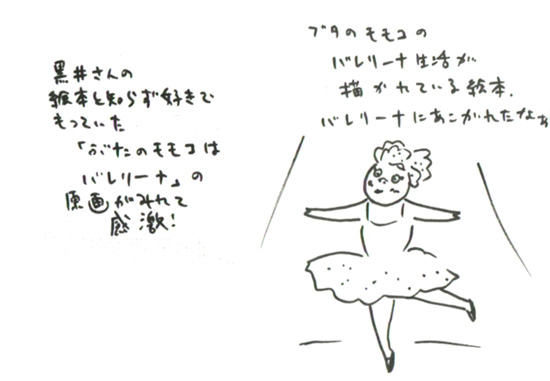 黒井さんの
絵本と知らず好きで
もっていた
「ぶたのモモコは
バレリーナ」の
原画がみれて
感激!
ブタのモモコの
バレリーナ生活が
描かれている絵本.
バレリーナにあこがれたなぁ